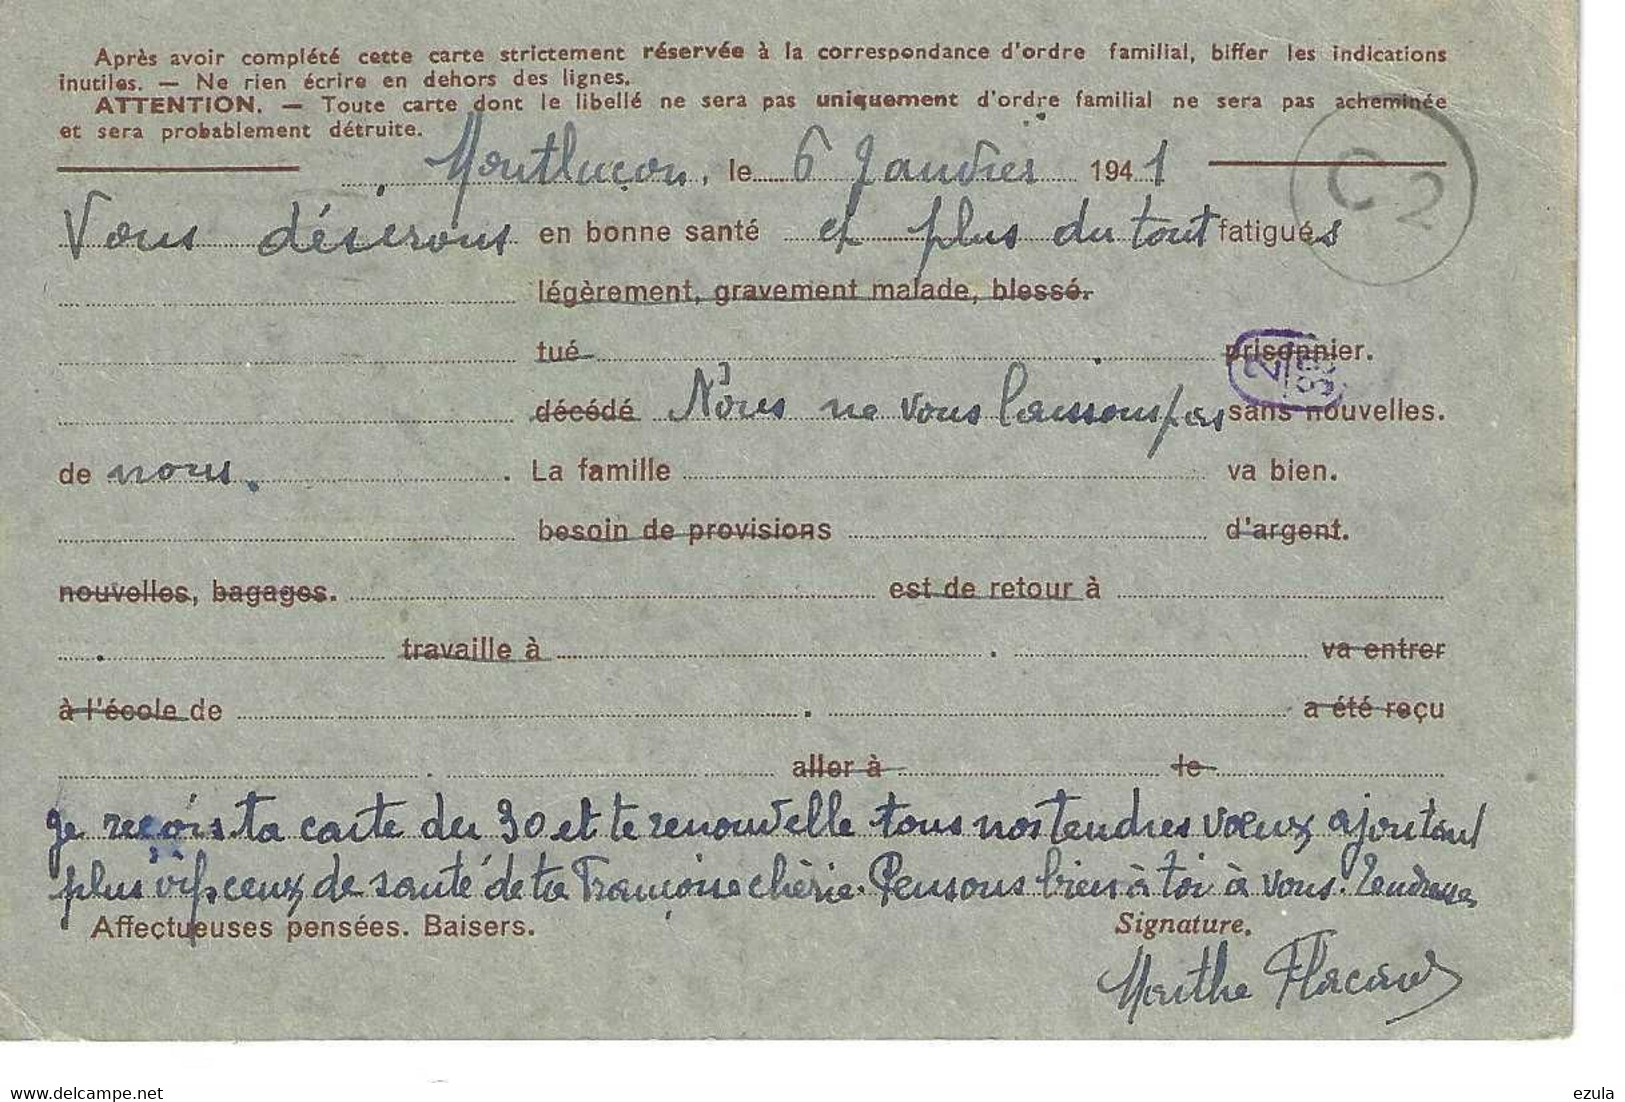 Après avoir complété cette carte strictement réservée à la correspondance d'ordre familial, biffer les indications
inutiles. — Ne rien écrire en dehors des lignes.
ATTENTION. — Toute carte dont le libellé ne sera pas uniquement d'ordre familial ne sera pas acheminée
et sera probablement détruite.
Montluçon, le 6 Janvier 1941
C 2
Vous désirons en bonne santé et plus du tout fatigués
légèrement, gravement malade, blessé.
tué prisonnier.
décédé Nous ne vous laissons pas sans nouvelles.
de nous. La famille va bien.
besoin de provisions d'argent.
nouvelles, bagages. est de retour à
travaille à . va entrer
à l'école de . a été reçu
. aller à le
Je reçois ta carte du 30 et te renouvelle tous nos tendres vœux ajoutant
plus vifs ceux de santé de ta Françoise chérie. Pensons bien à toi à vous. Tendresses
Affectueuses pensées. Baisers. Signature.
Marthe
ezula